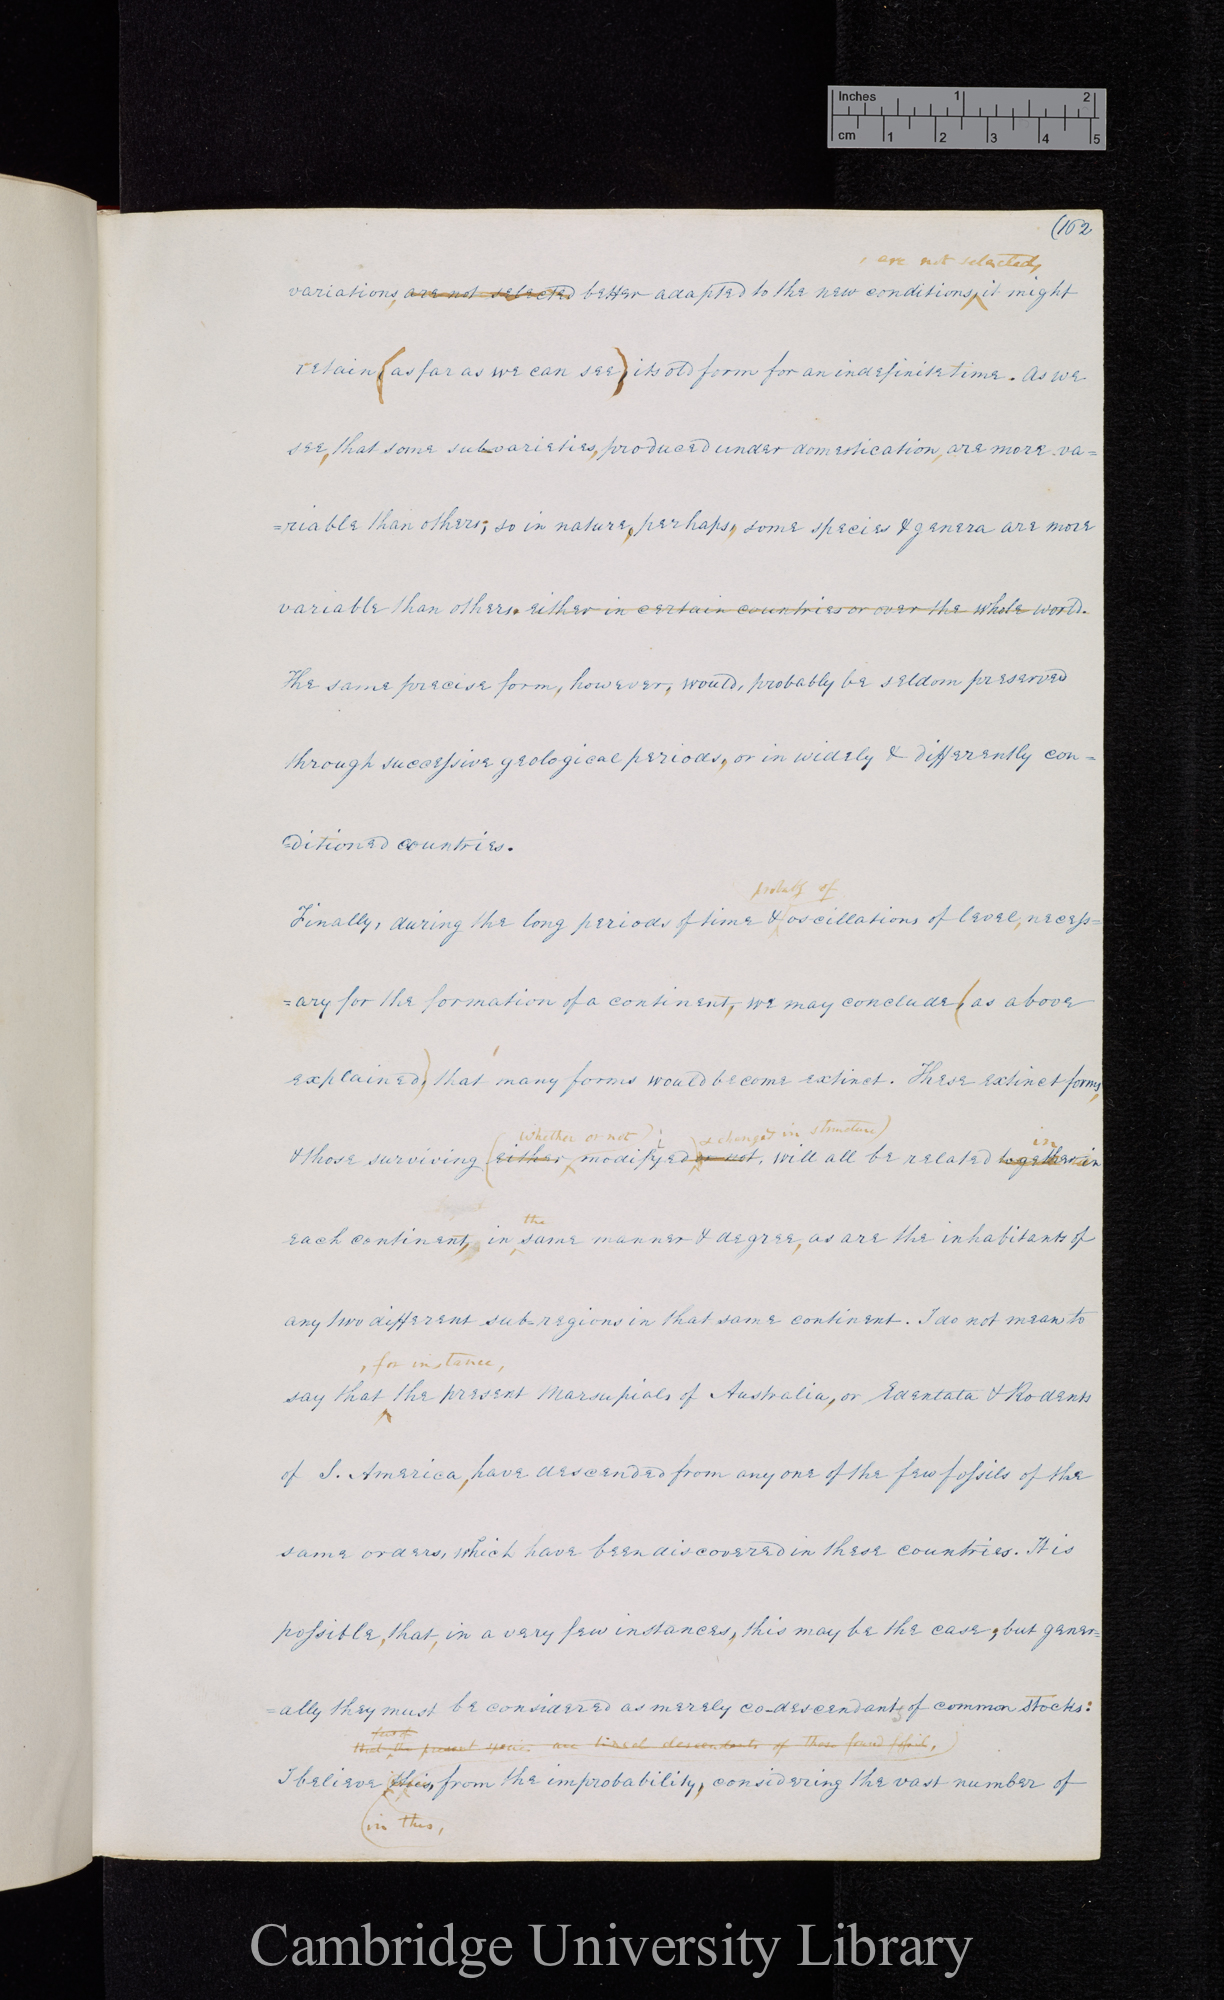 Inches 1 2
cm 1 2 3 4 5
(162
, are not selected,
variations, are not selected better adapted to the new conditions, it might
retain (as far as we can see) its old form for an indefinite time. As we
see, that some sub-varieties, produced under domestication, are more va=
=riable than others; so in nature, perhaps, some species & genera are more
variable than others. either in certain countries or over the whole world.
The same precise form, however, would, probably be seldom preserved
through successive geological periods, or in widely & differently con=
=ditioned countries.
probably of
Finally, during the long periods of time & oscillations of level, necess=
=ary for the formation of a continent, we may conclude, (as above
explained) that many forms would become extinct. These extinct forms,
whether or not & changed in structure) in
& those surviving (either modifyed or not, will all be related together in
the
each continent, in same manner & degree, as are the inhabitants of
any two different sub-regions in that same continent. I do not mean to
, for instance,
say that the present Marsupials of Australia, or Edentata & Rodents
of S. America, have descended from any one of the few fossils of the
same orders, which have been discovered in these countries. It is
possible, that, in a very few instances, this may be the case; but gener=
=ally they must be considered as merely co-descendants of common stocks:
that the present species are lineal descendants of those found fossils,)
I believe this, from the improbability, considering the vast number of
(in this,
Cambridge University Library